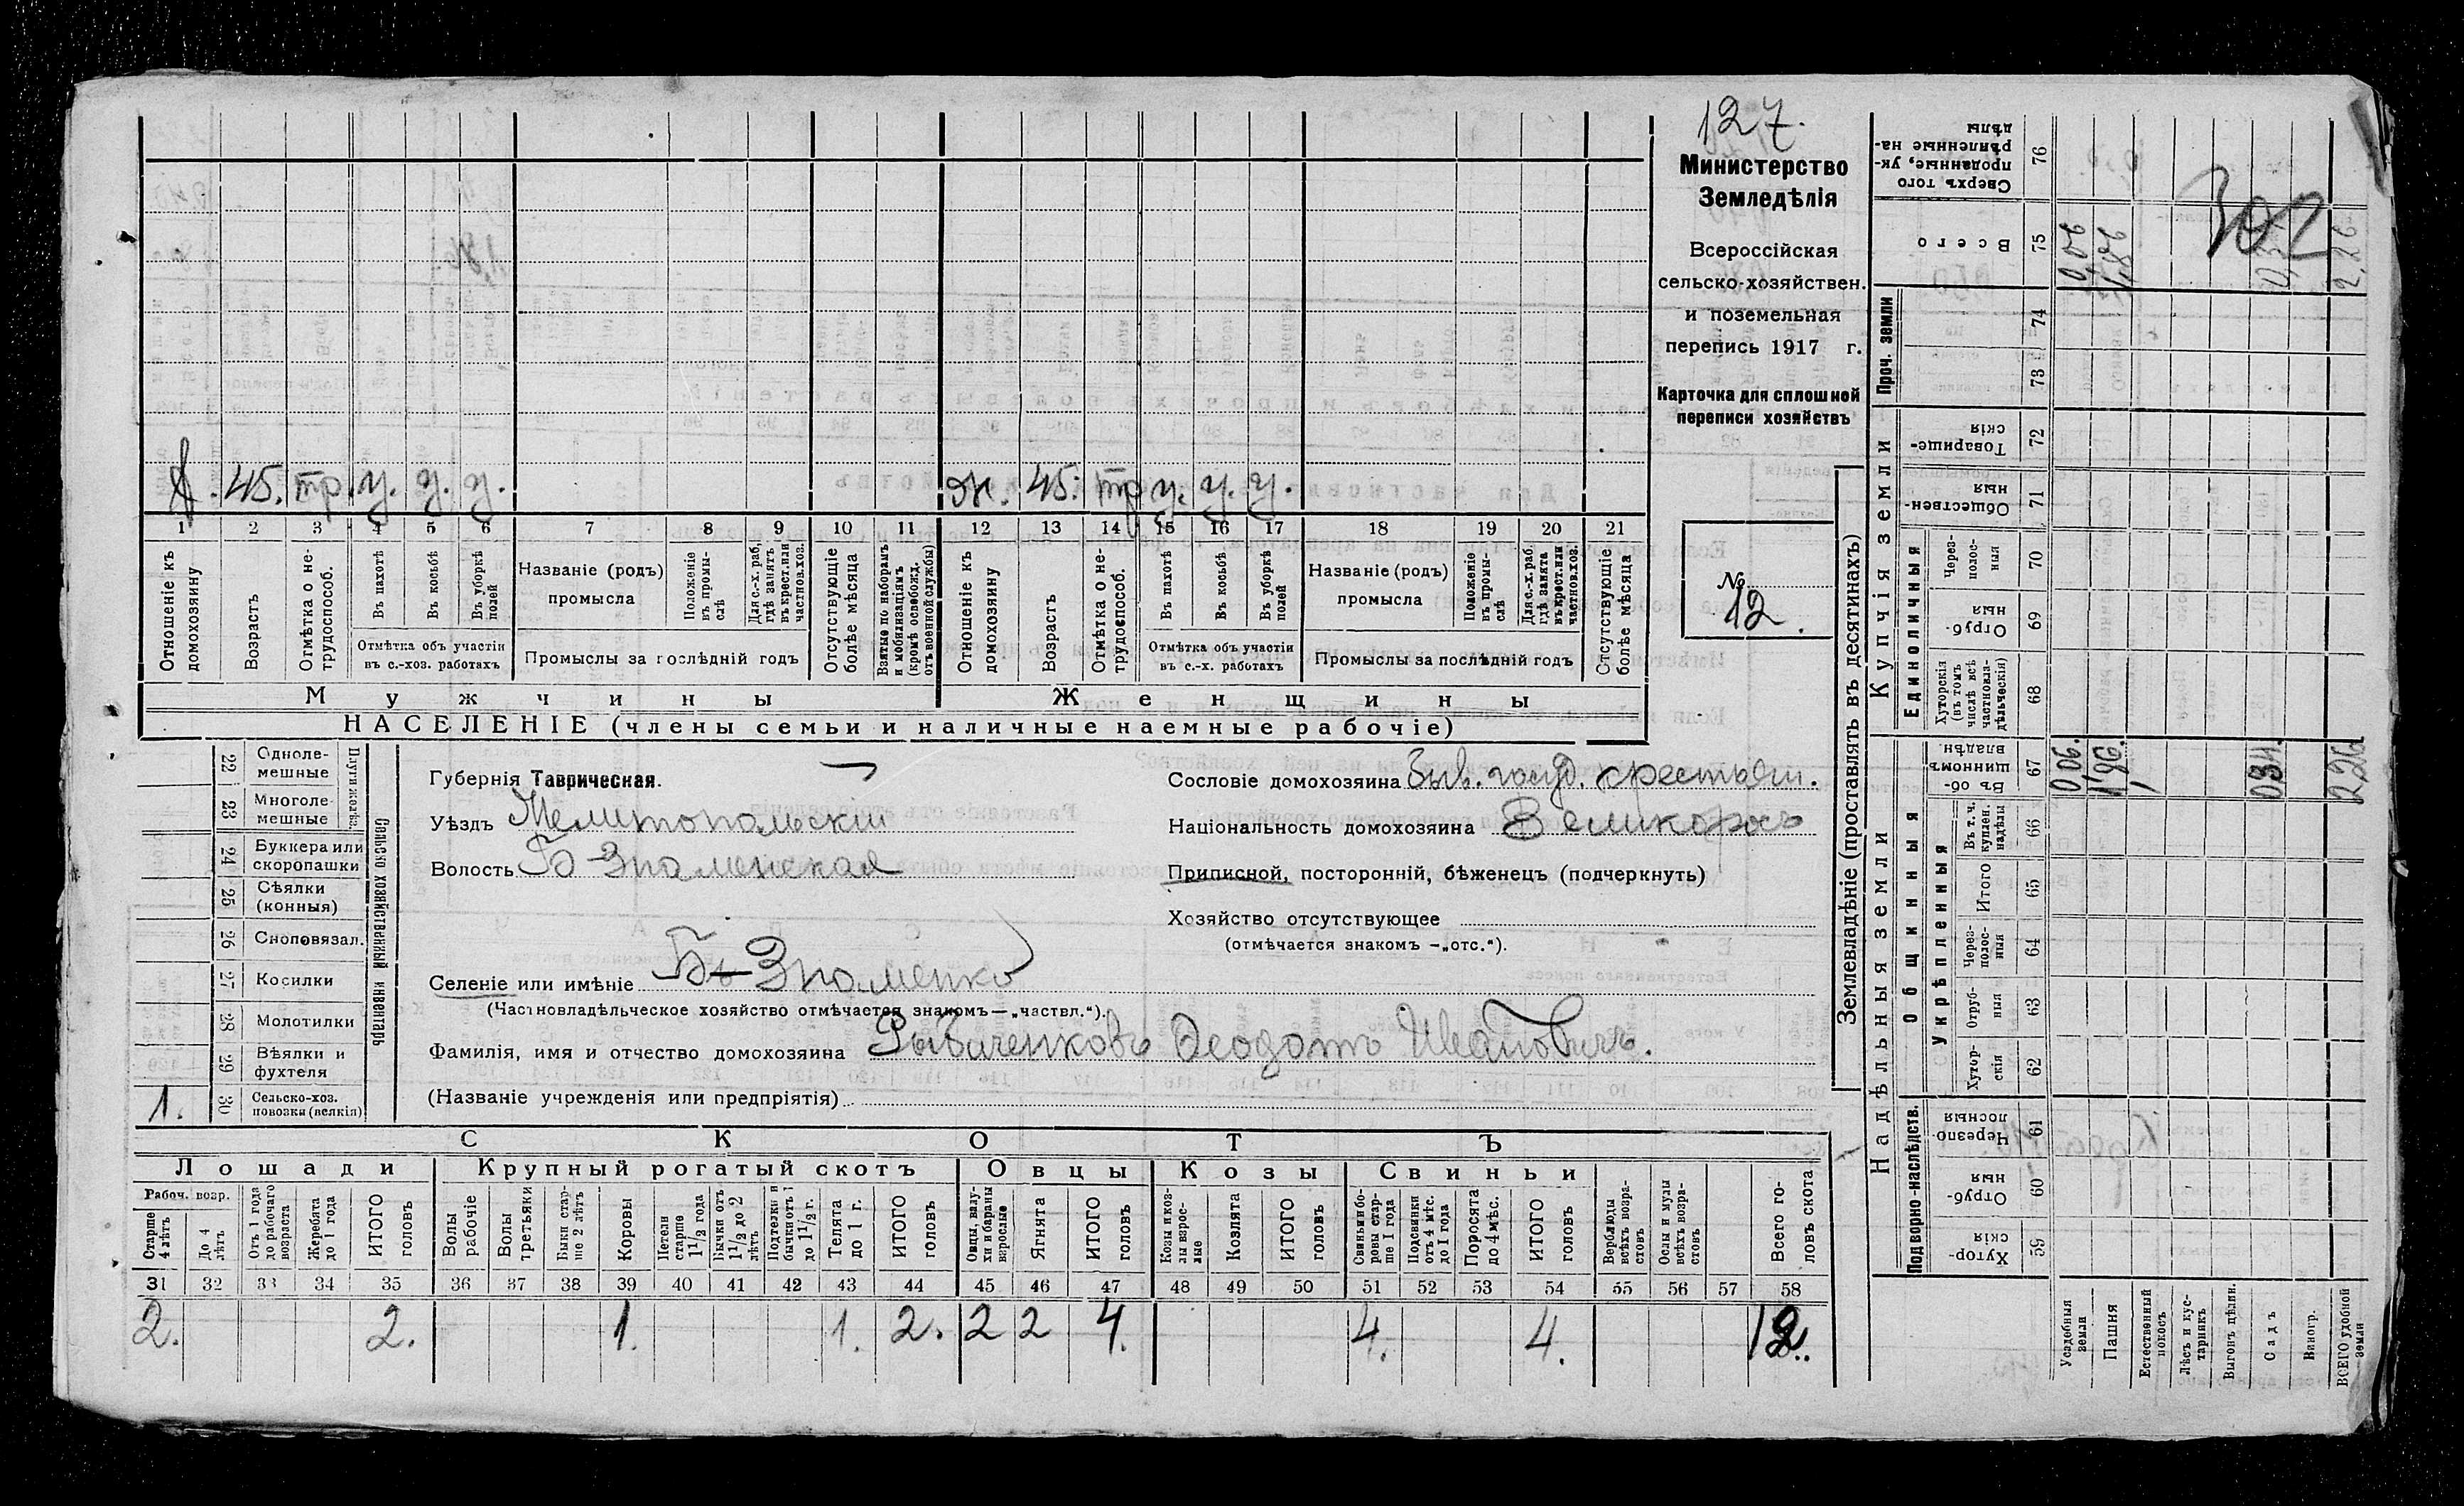 127.
Министерство
Земледѣлія
Всероссійская
сельско-хозяйствен.
и поземельная
перепись 1917 г.
Карточка для сплошной
переписи хозяйствъ
№
12.
45. тр. у. у. у.
ж. 45. тр у. у. у.
1 2 3 4 5 6 7 8 9 10 11 12 13 14 15 16 17 18 19 20 21
Отношеніе къ домохозяину
Возрастъ
Отмѣтка о нетрудоспособ.
Въ пахотѣ
Въ косьбѣ
Въ уборкѣ полей
Отмѣтка объ участіи въ с.-хоз. работахъ
Названіе (родъ) промысла
Положеніе въ промыслѣ
Для с.-х. раб, гдѣ занятъ въ крест. или частнов. хоз.
Промыслы за послѣдній годъ
Отсутствующіе болѣе мѣсяца
Взятые по наборамъ и мобилизаціямъ (кромѣ освобожд. отъ военной службы)
Отношеніе къ домохозяину
Возрастъ
Отмѣтка о нетрудоспособ.
Въ пахотѣ
Въ косьбѣ
Въ уборкѣ полей
Отмѣтка объ участіи въ с.-х. работахъ
Названіе (родъ) промысла
Положеніе въ промыслѣ
Для с.-х. раб. гдѣ занята въ крест. или частнов. хоз.
Промыслы за послѣдній годъ
Отсутствующіе болѣе мѣсяца
Мужчины
Женщины
НАСЕЛЕНІЕ (члены семьи и наличные наемные рабочіе)
22 Однолемешные
23 Многолемешные
Плуги желѣз.
24 Буккера или скоропашки
25 Сѣялки (конныя)
26 Сноповязал.
27 Косилки
28 Молотилки
29 Вѣялки и фухтеля
1. 30 Сельско-хоз. повозки (всякія)
Сельско хозяйственный инвентарь
Губернія Таврическая.
Уѣздъ Мелитопольскій
Волость Б-Знаменская
Селеніе или имѣніе Б-Знаменка
(Частновладѣльческое хозяйство отмѣчается знакомъ—„частвл.“).
Фамилія, имя и отчество домохозяина Рыбаченковъ Феодотъ Ивановичъ.
(Названіе учрежденія или предпріятія)
Сословіе домохозяина Быв. госуд. крестьян.
Національность домохозяина Великоросъ
Приписной, посторонній, бѣженецъ (подчеркнуть)
Хозяйство отсутствующее
(отмѣчается знакомъ —„отс.“).
СКОТЪ
Лошади
Крупный рогатый скотъ
Овцы
Козы
Свиньи
Рабоч. возр.
Старше 4 лѣтъ
До 4 лѣтъ
Отъ 1 года до рабочаго возраста
Жеребята до 1 года
ИТОГО головъ
Волы рабочіе
Волы третьяки
Быки старше 2 лѣтъ
Коровы
Нетели старше 1½ года
Бычки отъ 1½ до 2 лѣтъ
Подтелки и бычки отъ 1 до 1½ г.
Телята до 1 г.
ИТОГО головъ
Овцы, валухи и бараны взрослые
Ягнята
ИТОГО головъ
Козы и козлы взрослые
Козлята
ИТОГО головъ
Свиньи боровы старше 1 года
Подсвинки отъ 4 мѣс. до 1 года
Поросята до 4 мѣс.
ИТОГО головъ
Верблюды всѣхъ возрастовъ
Ослы и мулы всѣхъ возрастовъ
Всего головъ скота
31 32 33 34 35 36 37 38 39 40 41 42 43 44 45 46 47 48 49 50 51 52 53 54 55 56 57 58
2. 2. 1. 1. 2. 2 2 4. 4. 4. 12.
Землевладѣніе (проставлять въ десятинахъ)
Надѣльныя земли
Купчія земли
Проч. земли
Подворно-наслѣдств.
Общинныя
Укрѣпленныя
Единоличныя
Сверхъ того проданные, укрѣпленные надѣлы 76
Всего 75 0,06 1,86 2,26
74
73
Товарищескія 72
Общественныя 71
Черезполосныя 70
Отрубныя 69
Хуторскія (въ томъ числѣ всѣ частновладѣльческія) 68
Въ общинномъ владѣн. 67 0 06. 1,86. 034. 2 26
Въ т. ч. куплен. надѣлы 66
Итого 65
Черезполосныя 64
Отрубныя 63
Хуторскія 62
Черезполосныя 61
Отрубныя 60
Хуторскія 59
Усадебныя земли
Пашня
Естественный покосъ
Лѣсъ и кустарникъ
Выгонъ цѣлин.
Садъ
Виногр.
ВСЕГО удобной земли
302